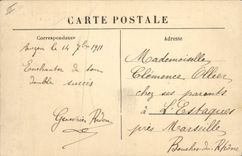 CARTE POSTALE
Correspondance
Adresse
le 14 7bre 1911
Enchantés de ton
double succès
Mademoiselle
Clémence Ollier
chez ses parents
à L'Estaque
près Marseille
Bouches-du-Rhône